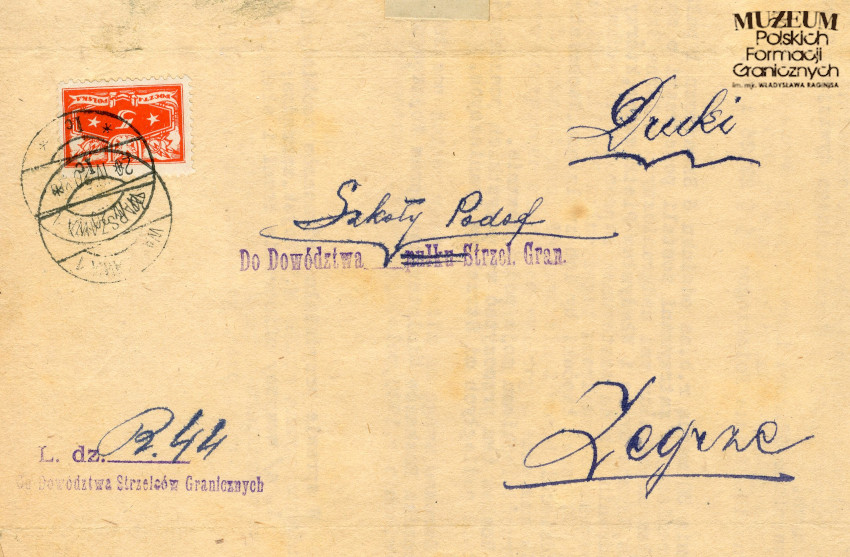 MUZEUM
Polskich
Formacji
Granicznych
im. mjr. WŁADYSŁAWA RAGINISA
POCZTA POLSKA
5
WARSZAWA
Druki
Szkoły Podof
Do Dowództwa pułku Strzel. Gran.
L. dz. B.44
Dowództwa Strzelców Granicznych
Zegrze